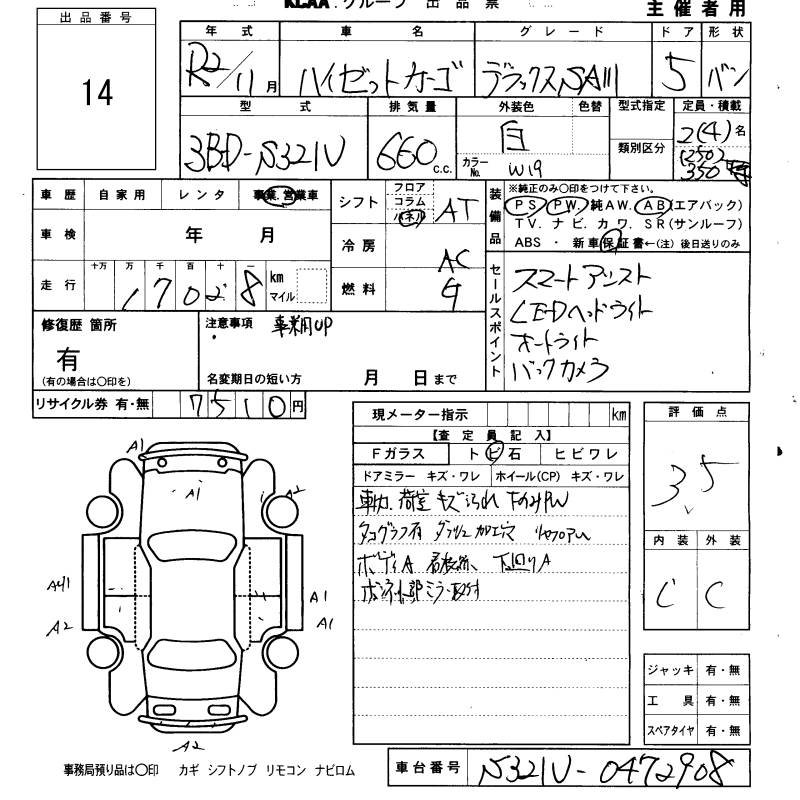 KLAA.グループ 出 品 票
主 催 者 用
出 品 番 号
14
年 式 車 名 グ レ ー ド ド ア 形 状
R2/11月 ハイゼットカーゴ デラックスSAIII 5 バン
型 式 排 気 量 外装色 色替 型式指定 定員・積載
3BD-S321V 660 c.c. 白 類別区分 2(4)名
カラーNo. W19 (250) 350
車 歴 自 家 用 レ ン タ 事業.営業車
車 検 年 月
走 行 十万 万 千 百 十 一 km マイル
17028
シフト フロア コラム パネル AT
冷 房 AC
燃 料 G
装備品
※純正のみ〇印をつけて下さい。
PS PW. 純AW. AB(エアバック)
TV. ナビ. カワ. SR(サンルーフ)
ABS ・ 新車保証書←(注) 後日送りのみ
セールスポイント
スマートアシスト
LEDヘッドライト
オートライト
バックカメラ
修復歴 箇所
有
(有の場合は〇印を)
注意事項 事業用UP
名変期日の短い方 月 日まで
リサイクル券 有・無 7510円
現メーター指示 km
【査 定 員 記 入】
Fガラス ト ビ 石 ヒビワレ
ドアミラー キズ・ワレ ホイール(CP) キズ・ワレ
車内.荷室 キズ汚れ
タコグラフ有 ダッシュ加工穴
ボディA 下回りA
評 価 点
3.5
内 装 外 装
C C
ジャッキ 有・無
工 具 有・無
スペアタイヤ 有・無
A1
A1
A2
A41
A2
A1
A1
A2
事務局預り品は〇印 カギ シフトノブ リモコン ナビロム
車台番号 S321V-0472908